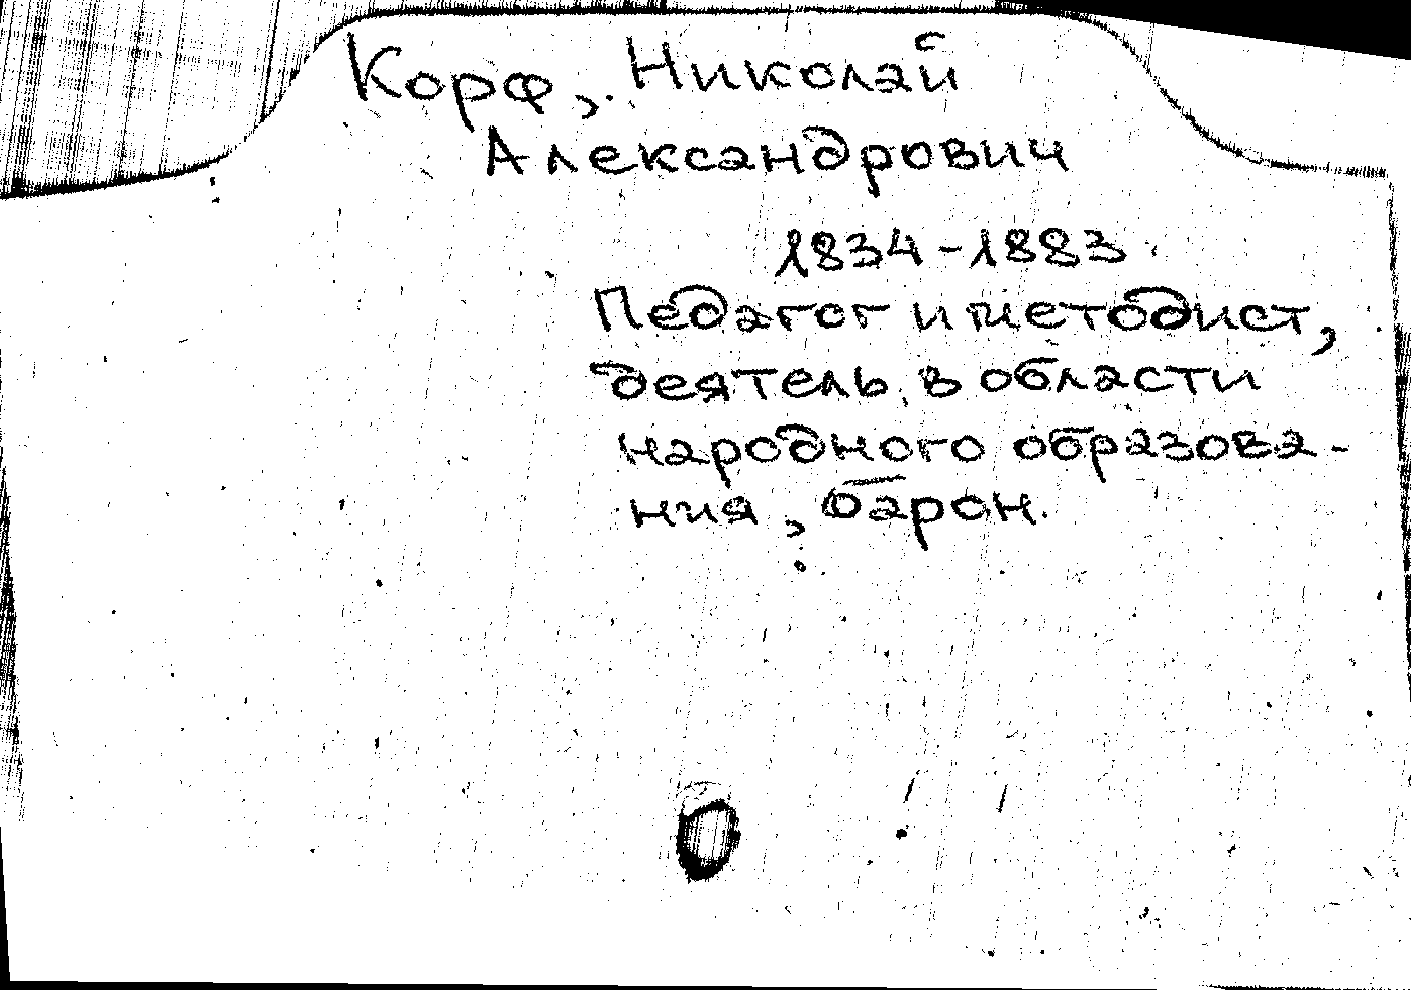 Корф, Николай
Александрович
1834-1883.
Педагог и методист,
деятель в области
народного образова-
ния, барон.